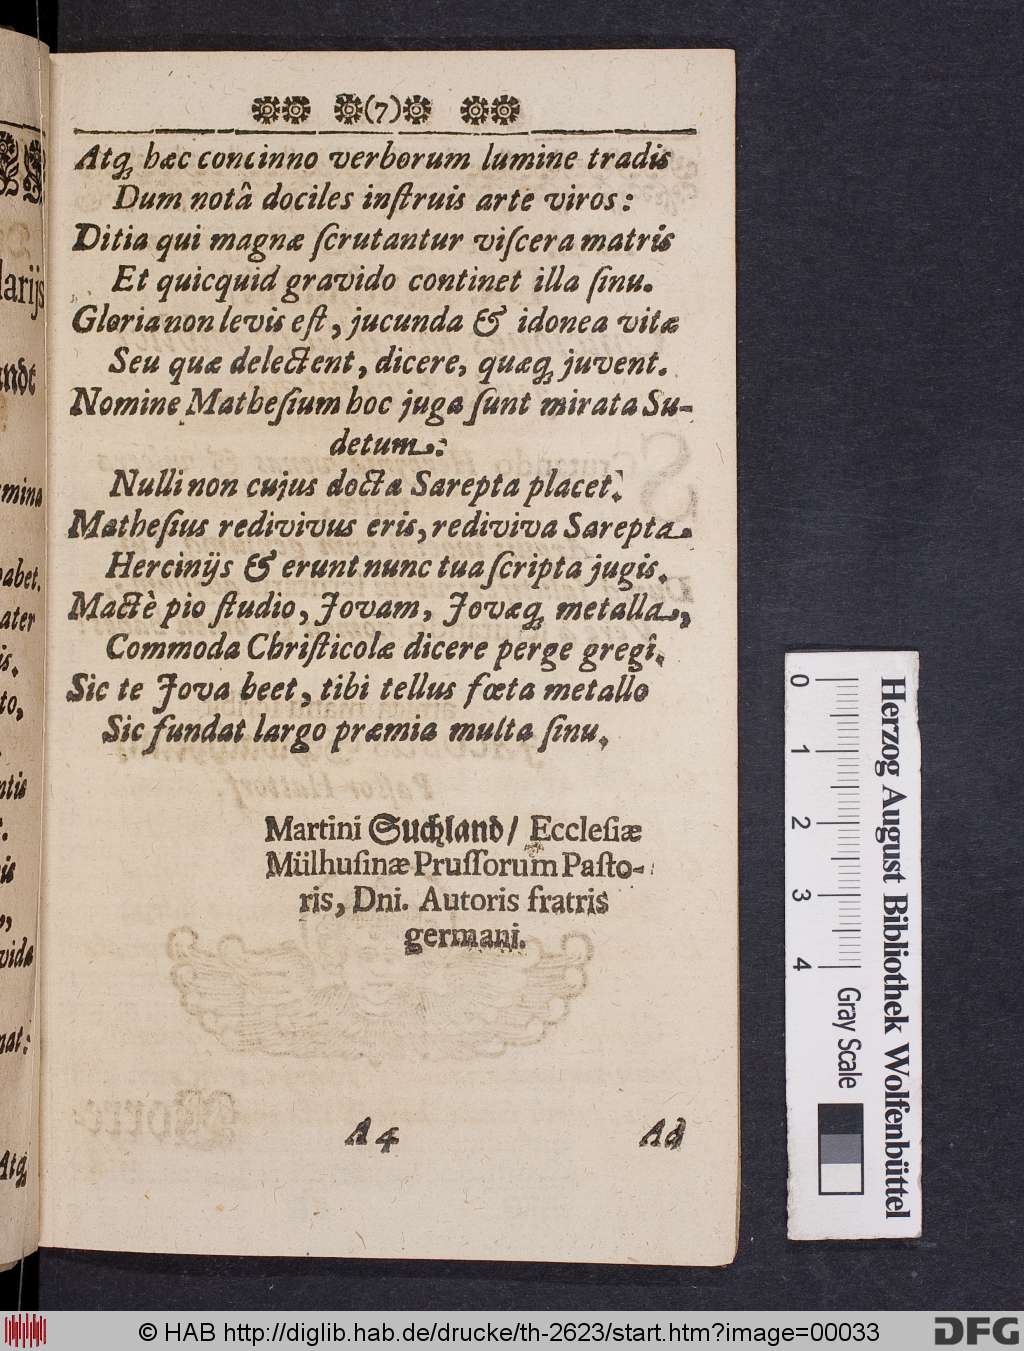 (7)
Atq; hæc concinno verborum lumine tradis
Dum notâ dociles inſtruis arte viros:
Ditia qui magnæ ſcrutantur viſcera matris
Et quicquid gravido continet illa ſinu.
Gloria non levis eſt, jucunda & idonea vitæ
Seu quæ delectent, dicere, quæq; juvent.
Nomine Matheſium hoc juga ſunt mirata Su-
detum:
Nulli non cujus docta Sarepta placet.
Matheſius redivivus eris, rediviva Sarepta.
Hercinijs & erunt nunc tua ſcripta jugis.
Mactè pio ſtudio, Jovam, Jovæq; metalla,
Commoda Chriſticolæ dicere perge gregi.
Sic te Jova beet, tibi tellus fœta metallo
Sic fundat largo præmia multa ſinu.
Martini Suchland/ Eccleſiæ
Mülhuſinæ Pruſſorum Paſto-
ris, Dni. Autoris fratris
germani.
A 4 Ad
larijs
andt
umina
habet.
ater
is.
to,
ntis
vida
nat:
Atq;
0 1 2 3 4
Herzog August Bibliothek Wolfenbüttel
Gray Scale
© HAB http://diglib.hab.de/drucke/th-2623/start.htm?image=00033
DFG